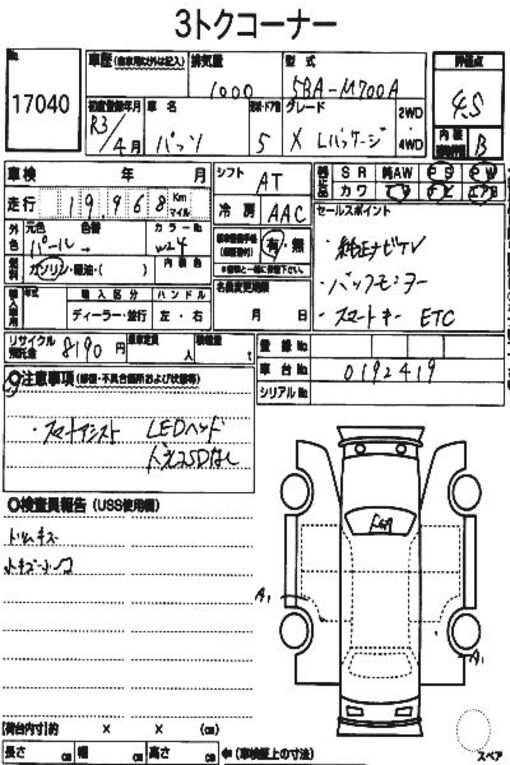 3トクコーナー
No.
17040
車歴 (自家用以外は記入)
排気量
1000
型式
5BA-M700A
評価点
4.5
初度登録年月
R3/4月
車名
パッソ
形状・ドア数
5
グレード
X Lパッケージ
2WD
4WD
内装
B
車検 年 月
シフト
AT
走行 19,968 Km マイル
冷房
AAC
純正品
SR 純AW PS PW
カワ
エアB
セールスポイント
・純正ナビTV
・バックモニター
・スマートキー ETC
外色
元色
色替
カラーNo.
パール →
W24
有・無
燃料
ガソリン・軽油・( )
内装色
名義変更期限
月 日
輸入車用
年式
輸入区分
ハンドル
ディーラー・並行
左・右
リサイクル預託金
8190円
乗車定員
人
積載量
t
登録No.
車台No.
0192419
シリアルNo.
◎注意事項 (修復・不具合箇所および状態等)
・スマートアシスト LEDヘッド
◎検査員報告 (USS使用欄)
トリムキズ
A1
A1
【荷台内寸】約 × × (cm)
長さ cm 幅 cm 高さ cm
⇦(車検証上の寸法)
スペア